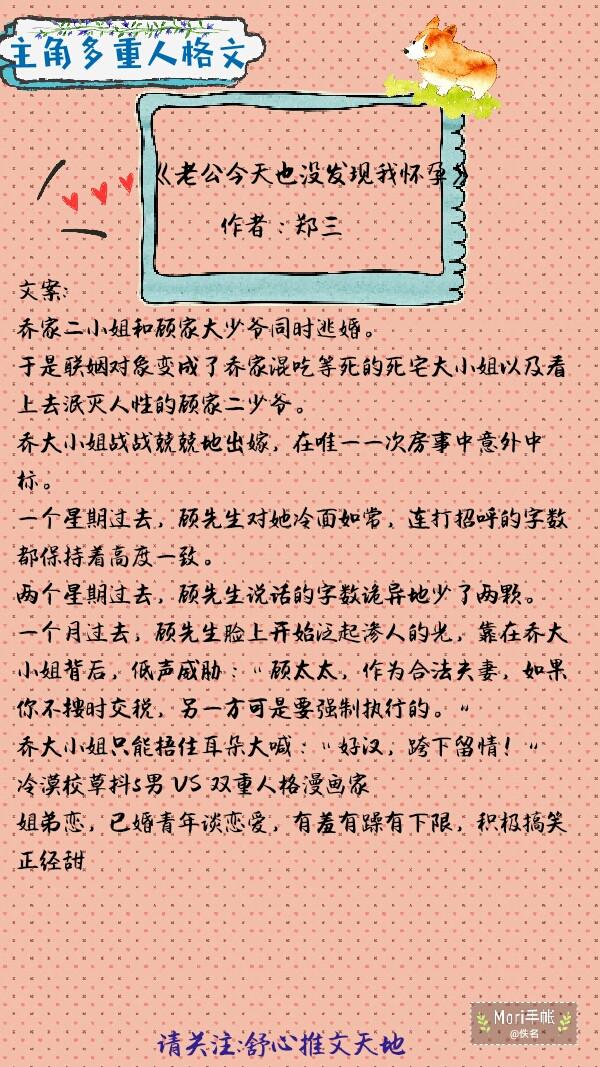 主角多重人格文
《老公今天也没发现我怀孕》
作者：郑三
文案:
乔家二小姐和顾家大少爷同时逃婚。
于是联姻对象变成了乔家混吃等死的死宅大小姐以及看
上去泯灭人性的顾家二少爷。
乔大小姐战战兢兢地出嫁，在唯一一次房事中意外中
标。
一个星期过去，顾先生对她冷面如常，连打招呼的字数
都保持着高度一致。
两个星期过去，顾先生说话的字数诡异地少了两颗。
一个月过去，顾先生脸上开始泛起渗人的光，靠在乔大
小姐背后，低声威胁："顾太太，作为合法夫妻，如果
你不按时交税，另一方可是要强制执行的。"
乔大小姐只能捂住耳朵大喊："好汉，胯下留情！"
冷漠校草抖s男 VS 双重人格漫画家
姐弟恋，已婚青年谈恋爱，有羞有躁有下限，积极搞笑
正经甜
Mori手帐
@佚名
请关注:舒心推文天地